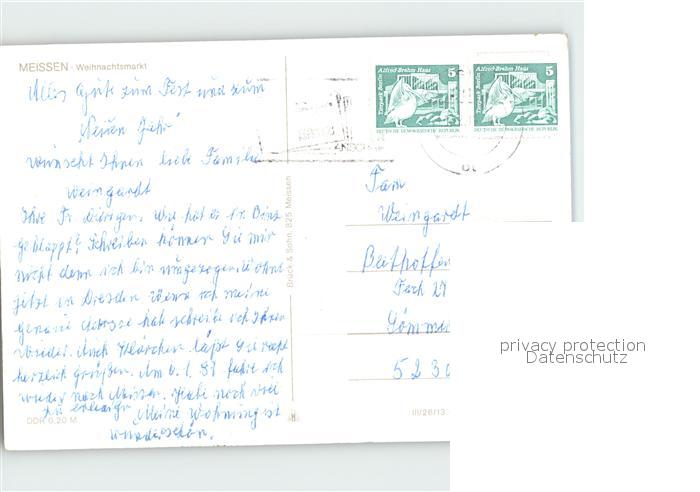 MEISSEN - Weihnachtsmarkt
Alles Gute zum Fest und zum
"Neuen Jahr"
wünscht Ihnen liebe Familie
Weingardt
Ihre Fr. wie hat es
geklappt? Schreiben können Sie mir
nicht denn ich bin umgezogen. Wohne
jetzt in Dresden. Wenn ich meine
genaue Adresse hab schreibe ich Ihnen
wieder. Auch läßt Sie recht
herzlich grüßen. Am 6.1. 81 fahre ich
wieder nach Meissen. Habe noch viel
zu erledigen. Meine Wohnung ist
wunderschön.
DDR 0,20 M
Bruck & Sohn, 825 Meissen
III/26/13
Alfred-Brehm-Haus 5
Tierpark Berlin
DEUTSCHE DEMOKRATISCHE REPUBLIK
Alfred-Brehm-Haus 5
Tierpark Berlin
DEUTSCHE DEMOKRATISCHE REPUBLIK
Fam
Weingardt
Beethoffen
Fach 27
Sömmer
523
privacy protection
Datenschutz